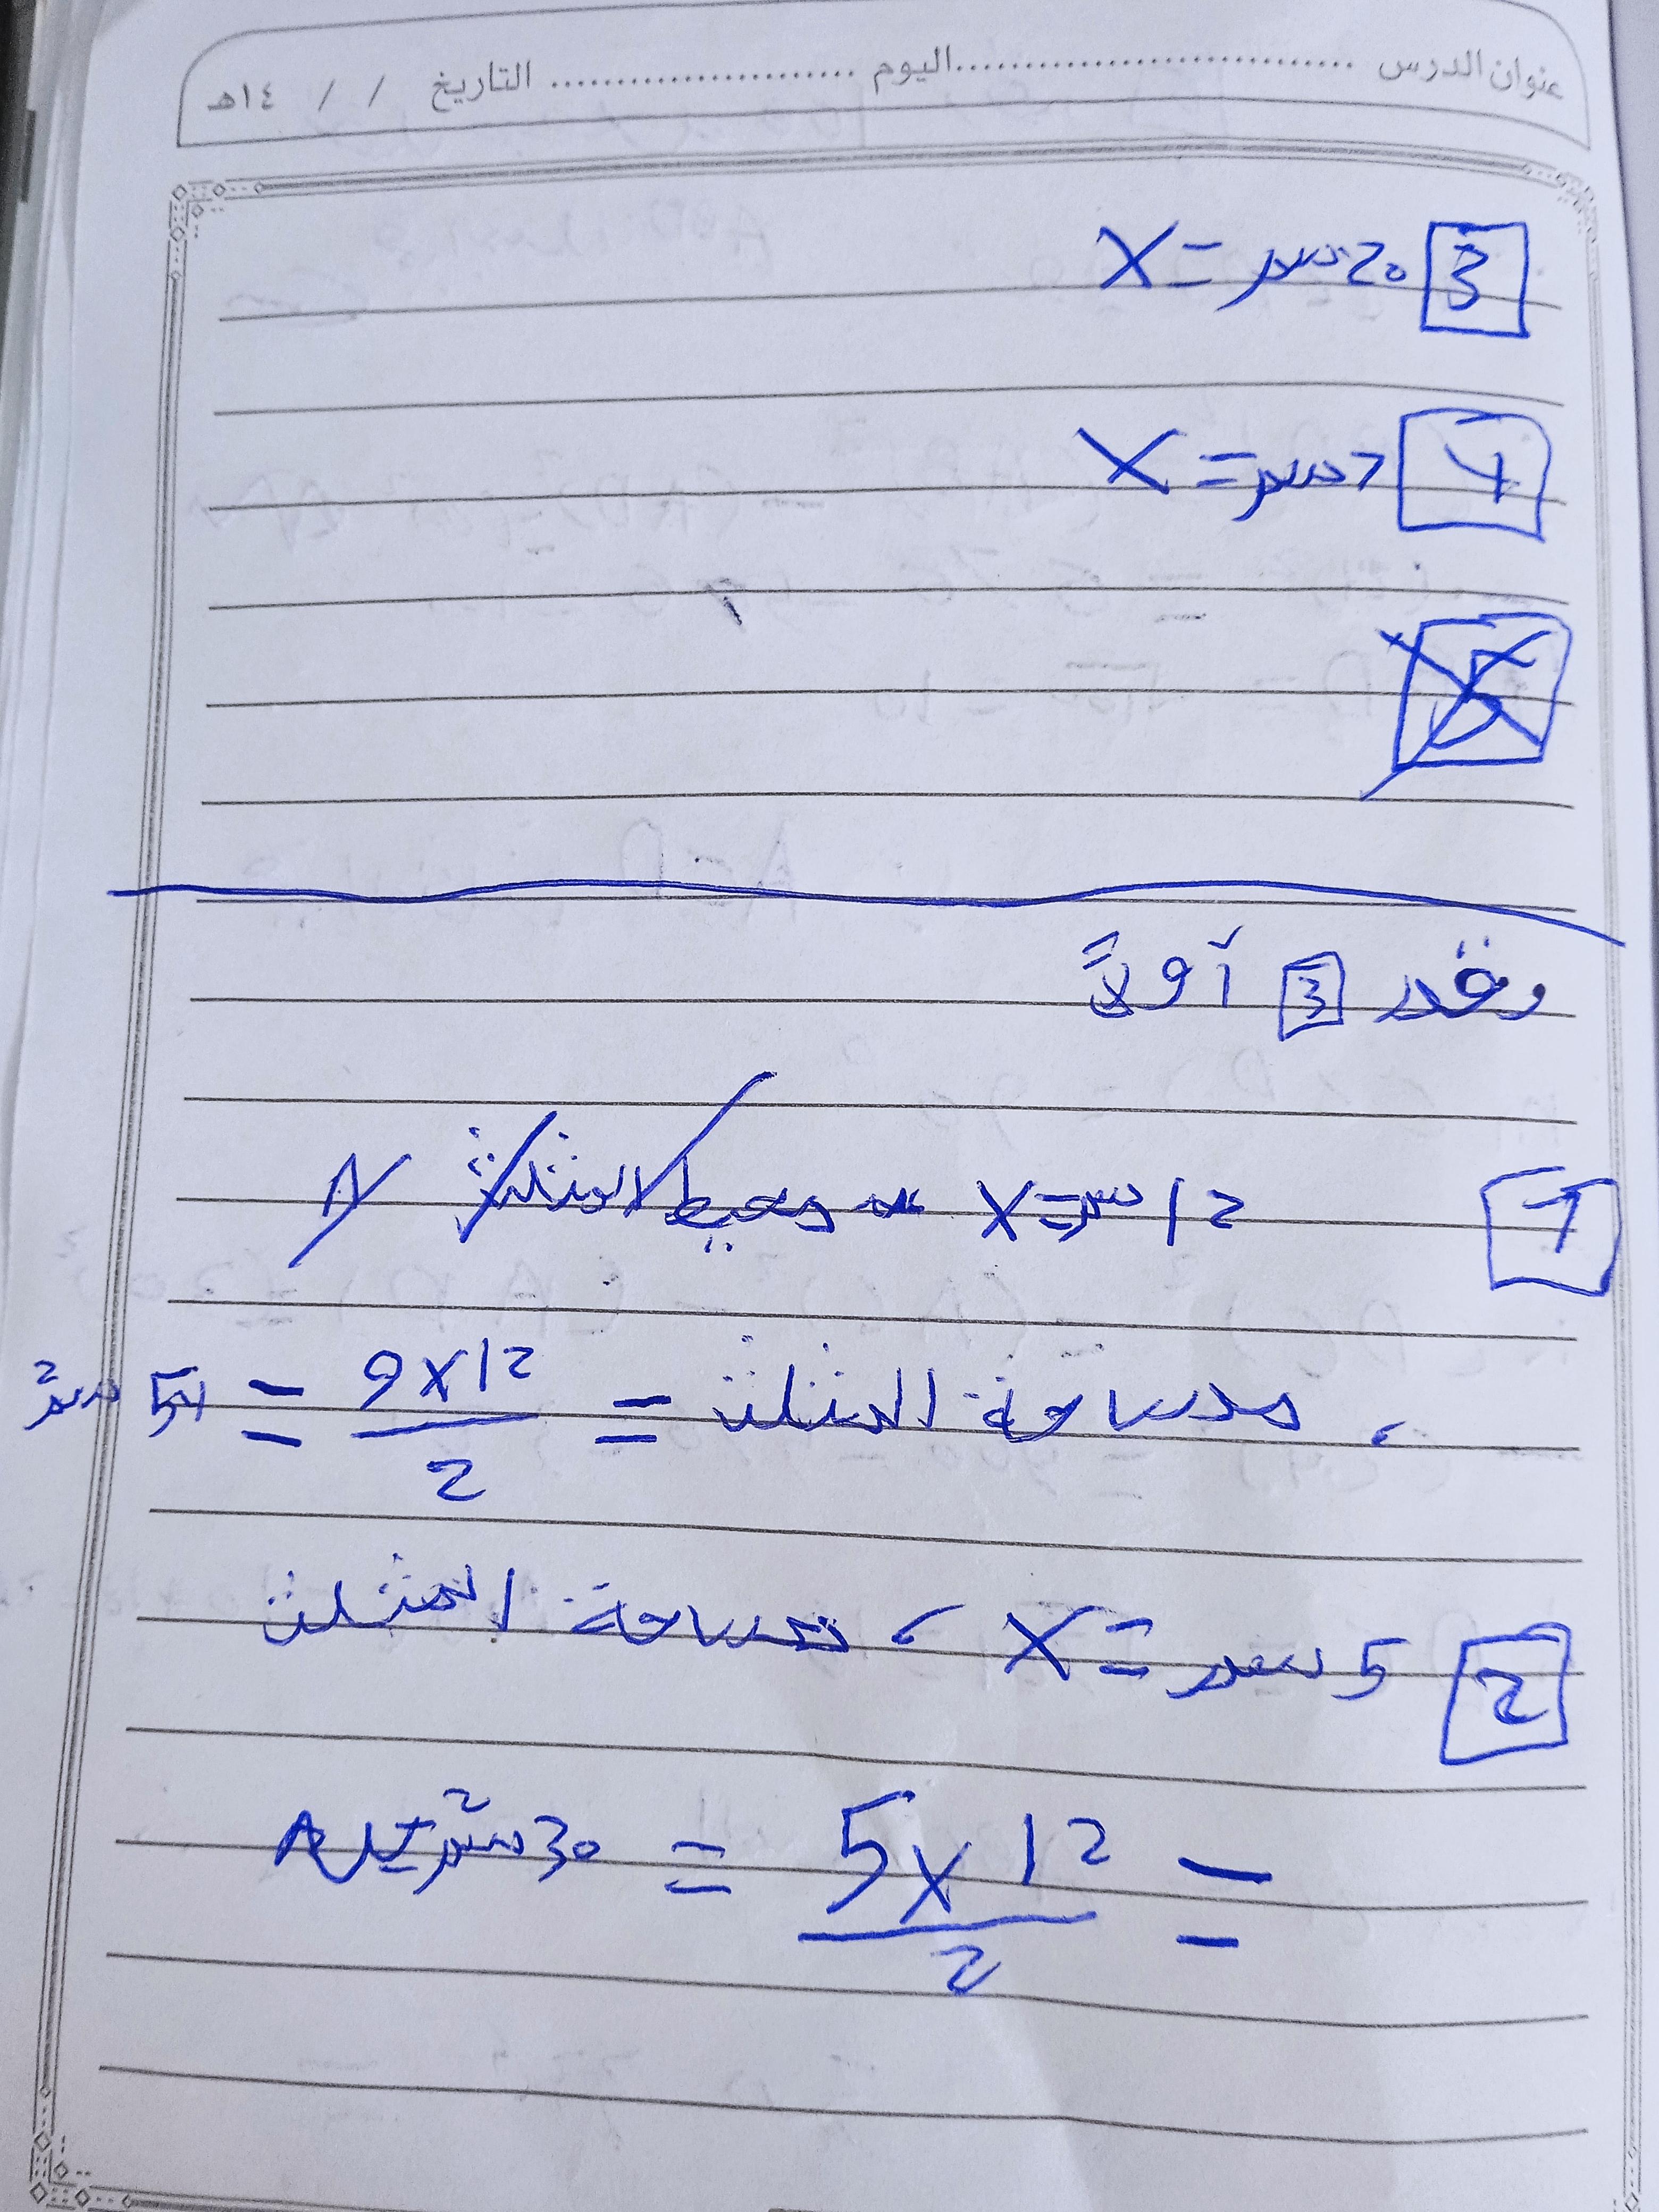 عنوان الدرس ............................ اليوم ...................... التاريخ / / ١٤هـ
3 20 سم = X
4 7 سم = X
5
رقم 3 أولاً
1 12 سم = X محيط المثلث
، مساحة المثلث = 9x12 / 2 = 54 سم2
2 5 سم = X ، مساحة المثلث
= 5x12 / 2 = 30 سم2